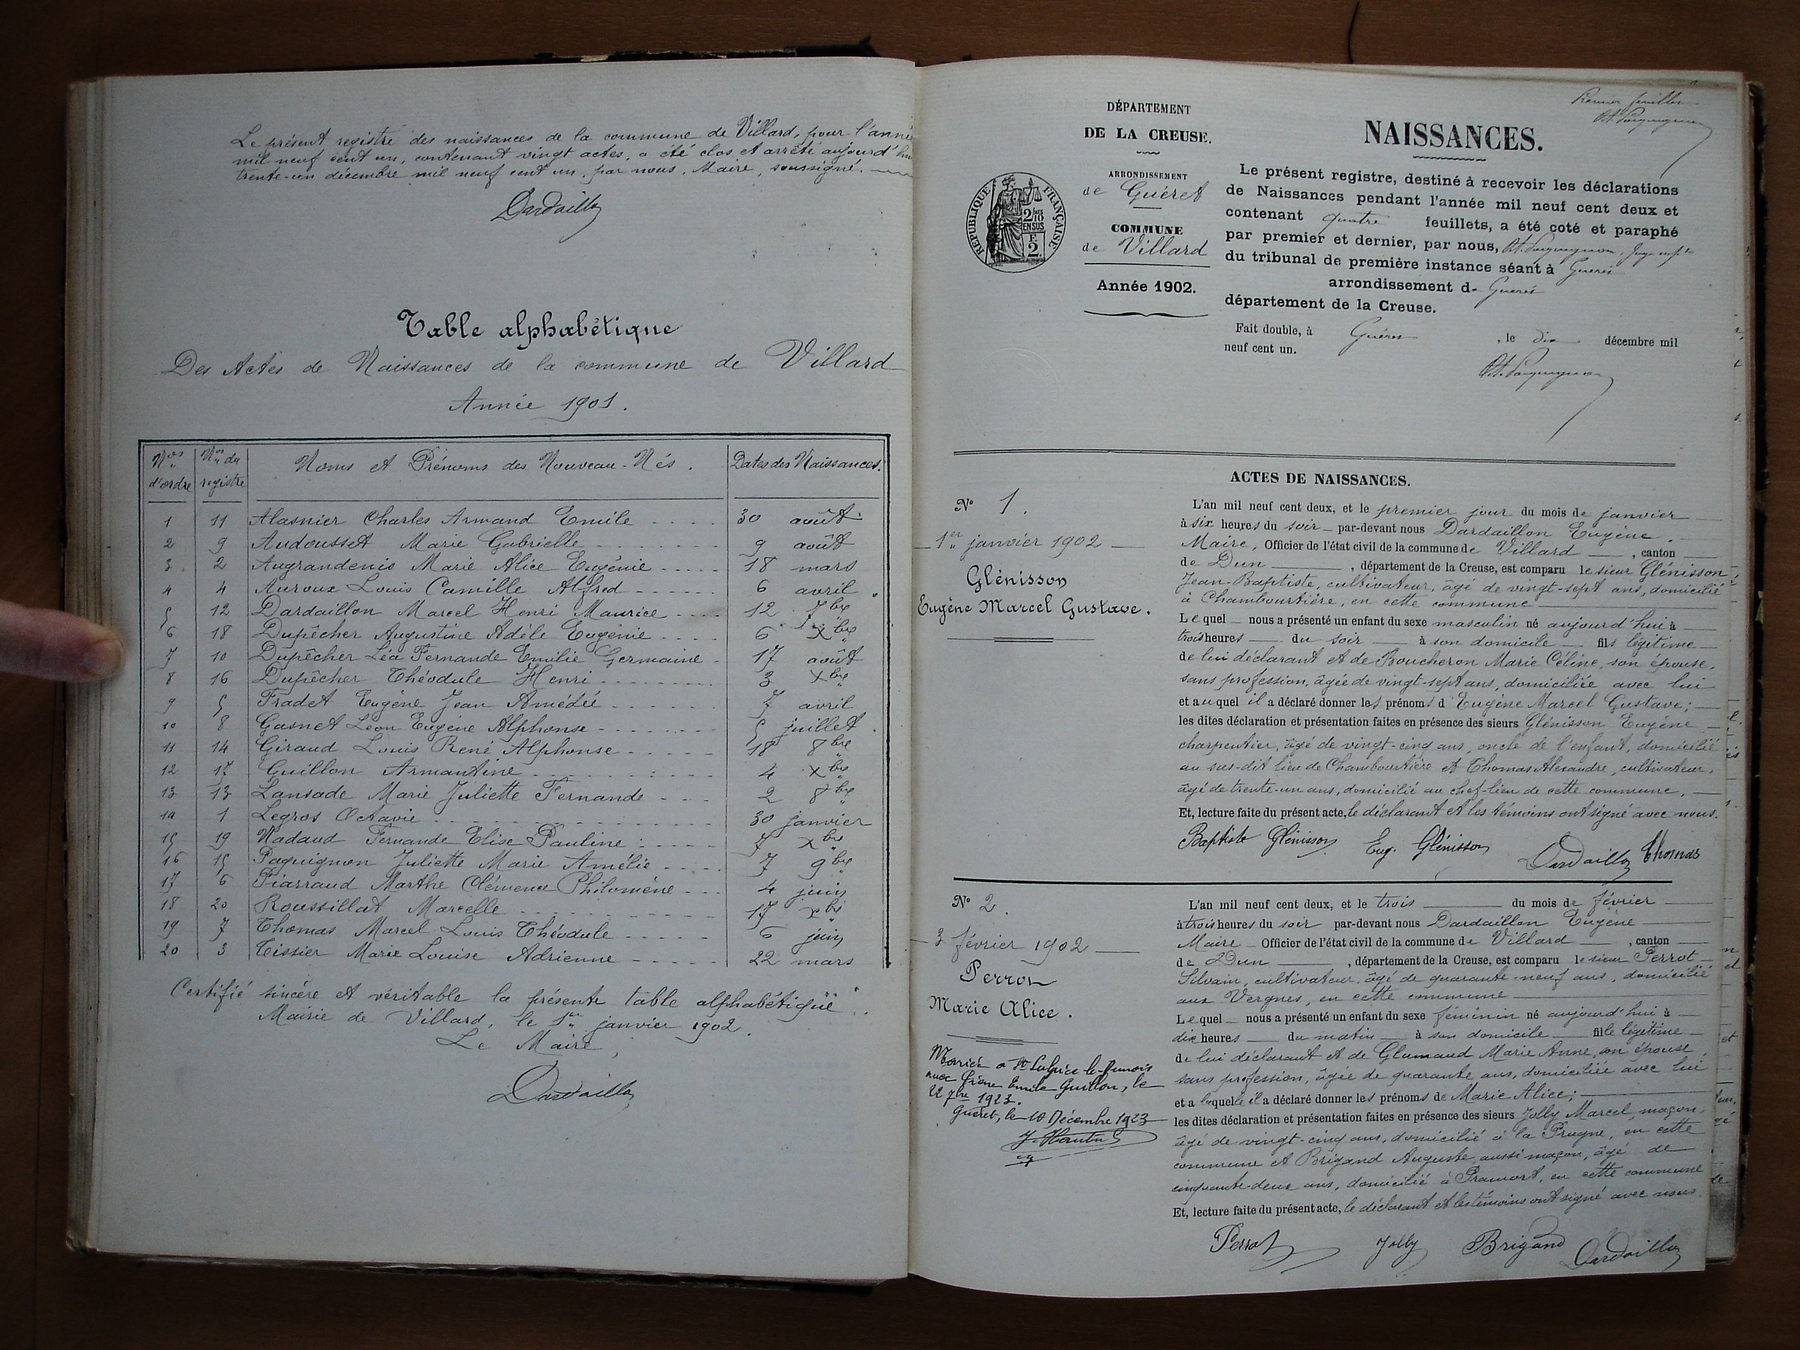 Le présent registre des naissances de la commune de Villard, pour l'année
mil neuf cent un, contenant vingt actes, a été clos et arrêté aujourd'hui
trente-un décembre mil neuf cent un, par nous, Maire, soussigné.
Dardaillon
Table alphabétique
Des Actes de Naissances de la commune de Villard
Année 1901.
Nos d'ordre Nos du registre Noms et Prénoms des Nouveau-Nés. Dates des Naissances.
1 11 Alasnier Charles Armand Emile 30 août
2 9 Audousset Marie Gabrielle 9 août
3 2 Augrandenis Marie Alice Eugénie 18 mars
4 4 Auroux Louis Camille Alfred 6 avril
5 12 Dardaillon Marcel Henri Maurice 12 7bre
6 18 Dupêcher Augustine Adèle Eugénie 6 Xbre
7 10 Dupêcher Léa Fernande Emilie Germaine 17 août
8 16 Dupêcher Théodule Henri 3 Xbre
9 5 Fradet Eugène Jean Amédée 7 avril
10 8 Gasnet Léon Eugène Alphonse 5 juillet
11 14 Giraud Louis René Alphonse 18 8bre
12 17 Guillon Armantine 4 Xbre
13 13 Lansade Marie Juliette Fernande 2 8bre
14 1 Legros Octavie 30 janvier
15 19 Nadaud Fernande Elise Pauline 7 Xbre
16 15 Paquignon Juliette Marie Amélie 7 9bre
17 6 Piarraud Marthe Clémence Philomène 4 juin
18 20 Roussillat Marcelle 17 Xbre
19 7 Thomas Marcel Louis Théodule 6 juin
20 3 Tissier Marie Louise Adrienne 22 mars
Certifié sincère et véritable la présente table alphabétique
Mairie de Villard, le 1er janvier 1902.
Le Maire,
Dardaillon
Premier feuillet
DÉPARTEMENT
DE LA CREUSE.
ARRONDISSEMENT
de Guéret
COMMUNE
de Villard
Année 1902.
RÉPUBLIQUE FRANÇAISE
NAISSANCES.
Le présent registre, destiné à recevoir les déclarations
de Naissances pendant l'année mil neuf cent deux et
contenant quatre feuillets, a été coté et paraphé
par premier et dernier, par nous,
du tribunal de première instance séant à Guéret
arrondissement de Guéret
département de la Creuse.
Fait double, à Guéret, le dix décembre mil
neuf cent un.
ACTES DE NAISSANCES.
N° 1.
1er janvier 1902
Glénisson
Eugène Marcel Gustave.
L'an mil neuf cent deux, et le premier jour du mois de janvier
à six heures du soir par-devant nous Dardaillon Eugène,
Maire, Officier de l'état civil de la commune de Villard, canton
de Dun, département de la Creuse, est comparu le sieur Glénisson
Jean-Baptiste, cultivateur, âgé de vingt-sept ans, domicilié
à Chambourtière, en cette commune
Lequel nous a présenté un enfant du sexe masculin né aujourd'hui à
trois heures du soir à son domicile fils légitime
de lui déclarant et de Boucheron Marie Céline, son épouse,
sans profession, âgée de vingt-sept ans, domiciliée avec lui
et auquel il a déclaré donner les prénoms d'Eugène Marcel Gustave;
les dites déclaration et présentation faites en présence des sieurs Glénisson Eugène
charpentier, âgé de vingt-cinq ans, oncle de l'enfant, domicilié
au sus-dit lieu de Chambourtière et Thomas Alexandre, cultivateur,
âgé de trente-un ans, domicilié au chef-lieu de cette commune.
Et, lecture faite du présent acte, le déclarant et les témoins ont signé avec nous.
Baptiste Glénisson Eug. Glénisson Dardaillon Thomas
N° 2.
3 février 1902
Perrot
Marie Alice.
Mariée à St Sulpice-le-Dunois
avec Guillon, le
1923.
Guéret, le 10 Décembre 1923
L'an mil neuf cent deux, et le trois du mois de février
à trois heures du soir par-devant nous Dardaillon Eugène
Maire Officier de l'état civil de la commune de Villard, canton
de Dun, département de la Creuse, est comparu le sieur Perrot
Silvain, cultivateur, âgé de quarante-neuf ans, domicilié
aux Vergnes, en cette commune
Lequel nous a présenté un enfant du sexe féminin né aujourd'hui à
dix heures du matin à son domicile fille légitime
de lui déclarant et de Glumaud Marie Anne, son épouse,
sans profession, âgée de quarante ans, domiciliée avec lui
et a laquelle il a déclaré donner les prénoms de Marie Alice;
les dites déclaration et présentation faites en présence des sieurs Jolly Marcel, maçon,
âgé de vingt-cinq ans, domicilié à la Prugne, en cette
commune et Brigand Auguste, aussi maçon, âgé de
cinquante-deux ans, domicilié à Pramort, en cette commune
Et, lecture faite du présent acte, le déclarant et les témoins ont signé avec nous.
Perrot Jolly Brigand Dardaillon